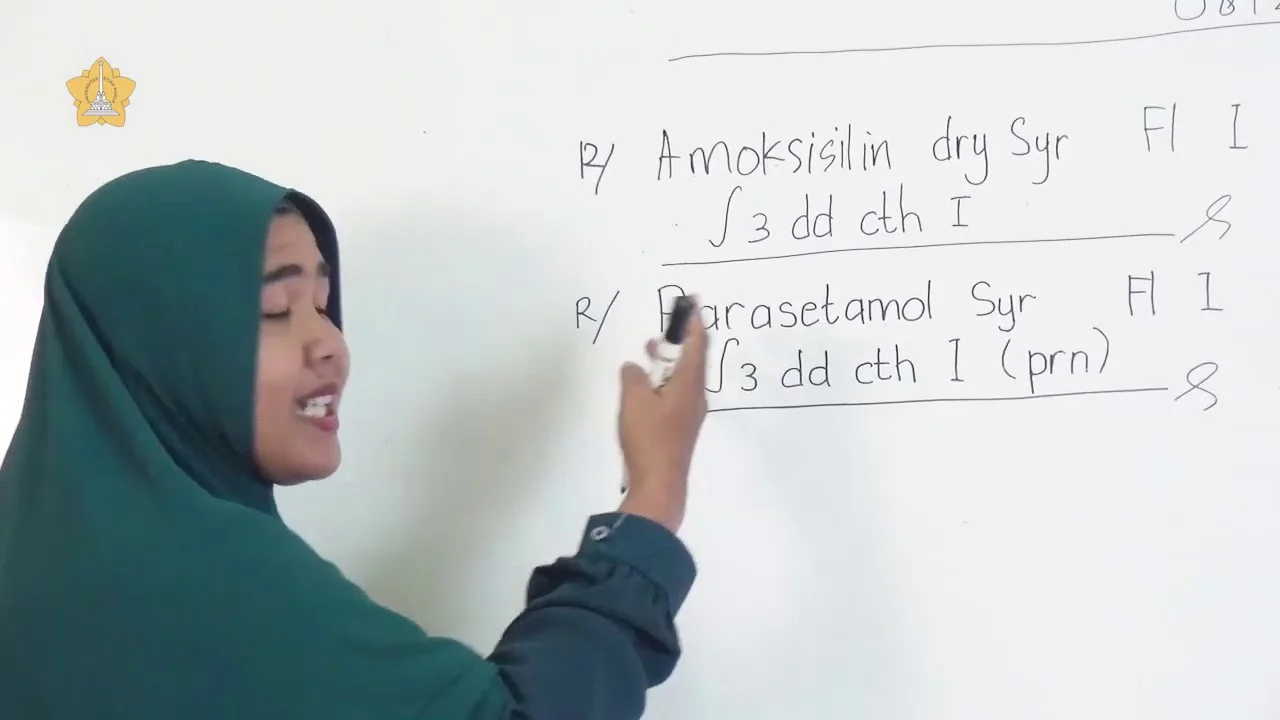 R/ Amoksisilin dry Syr Fl I
∫ 3 dd cth I
R/ Parasetamol Syr Fl I
∫ 3 dd cth I (prn)